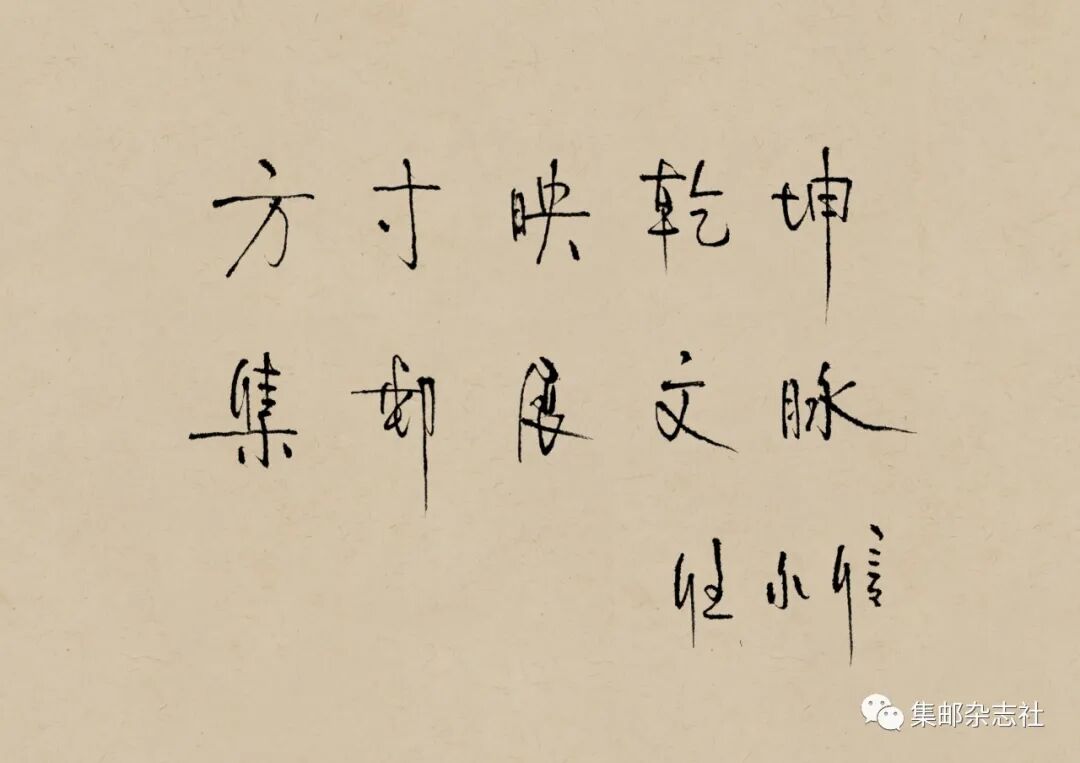 方寸映乾坤
集邮展文脉
任永信
集邮杂志社